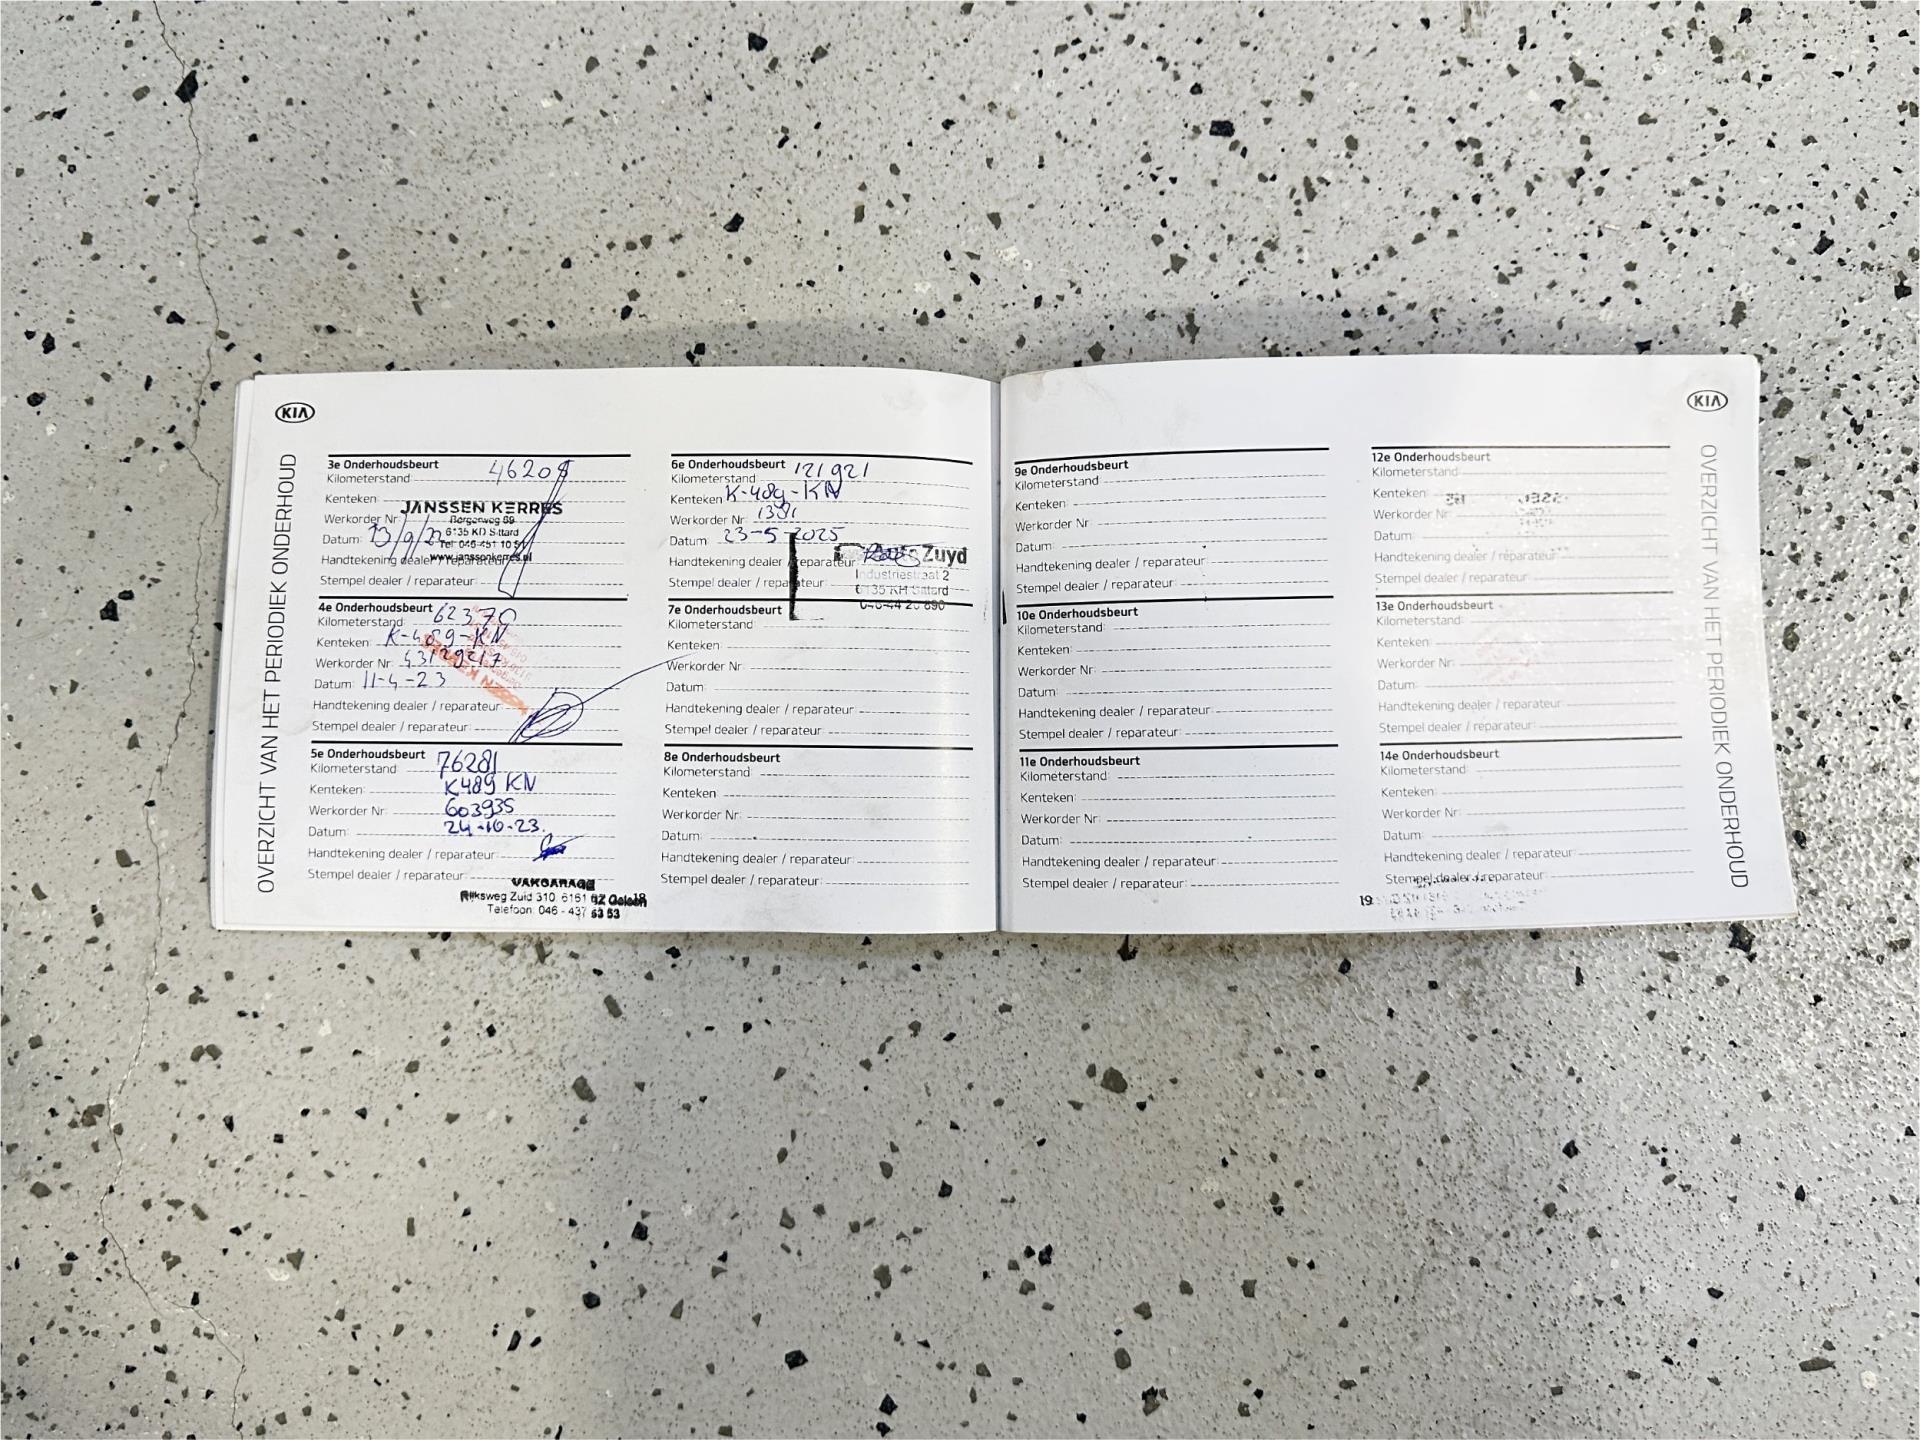 KIA
OVERZICHT VAN HET PERIODIEK ONDERHOUD
3e Onderhoudsbeurt
Kilometerstand: 46208
Kenteken:
JANSSEN KERRES
Werkorder Nr:
Bergerweg 59
6135 KD Sittard
Datum: 13/9/22
Tel: 046-451 10 51
www.janssenkerres.nl
Handtekening dealer / reparateur:
Stempel dealer / reparateur:
4e Onderhoudsbeurt
Kilometerstand: 62370
Kenteken: K-489-KN
Werkorder Nr: 43129217
Datum: 11-4-23
Handtekening dealer / reparateur:
Stempel dealer / reparateur:
5e Onderhoudsbeurt
Kilometerstand: 76281
Kenteken: K489 KN
Werkorder Nr: 603935
Datum: 24-10-23.
Handtekening dealer / reparateur:
Stempel dealer / reparateur:
VAKGARAGE
Rijksweg Zuid 310, 6161 BZ Geleen
Telefoon: 046 - 437 53 53
18
6e Onderhoudsbeurt
Kilometerstand: 121921
Kenteken: K-489-KN
Werkorder Nr: 1381
Datum: 23-5-2025
Handtekening dealer / reparateur:
Stempel dealer / reparateur:
Zuyd
Industriestraat 2
6135 KH Sittard
046-44 20 890
7e Onderhoudsbeurt
Kilometerstand:
Kenteken:
Werkorder Nr:
Datum:
Handtekening dealer / reparateur:
Stempel dealer / reparateur:
8e Onderhoudsbeurt
Kilometerstand:
Kenteken:
Werkorder Nr:
Datum:
Handtekening dealer / reparateur:
Stempel dealer / reparateur:
9e Onderhoudsbeurt
Kilometerstand:
Kenteken:
Werkorder Nr:
Datum:
Handtekening dealer / reparateur:
Stempel dealer / reparateur:
10e Onderhoudsbeurt
Kilometerstand:
Kenteken:
Werkorder Nr:
Datum:
Handtekening dealer / reparateur:
Stempel dealer / reparateur:
11e Onderhoudsbeurt
Kilometerstand:
Kenteken:
Werkorder Nr:
Datum:
Handtekening dealer / reparateur:
Stempel dealer / reparateur:
12e Onderhoudsbeurt
Kilometerstand:
Kenteken:
Werkorder Nr:
Datum:
Handtekening dealer / reparateur:
Stempel dealer / reparateur:
13e Onderhoudsbeurt
Kilometerstand:
Kenteken:
Werkorder Nr:
Datum:
Handtekening dealer / reparateur:
Stempel dealer / reparateur:
14e Onderhoudsbeurt
Kilometerstand:
Kenteken:
Werkorder Nr:
Datum:
Handtekening dealer / reparateur:
Stempel dealer / reparateur:
19
KIA
OVERZICHT VAN HET PERIODIEK ONDERHOUD